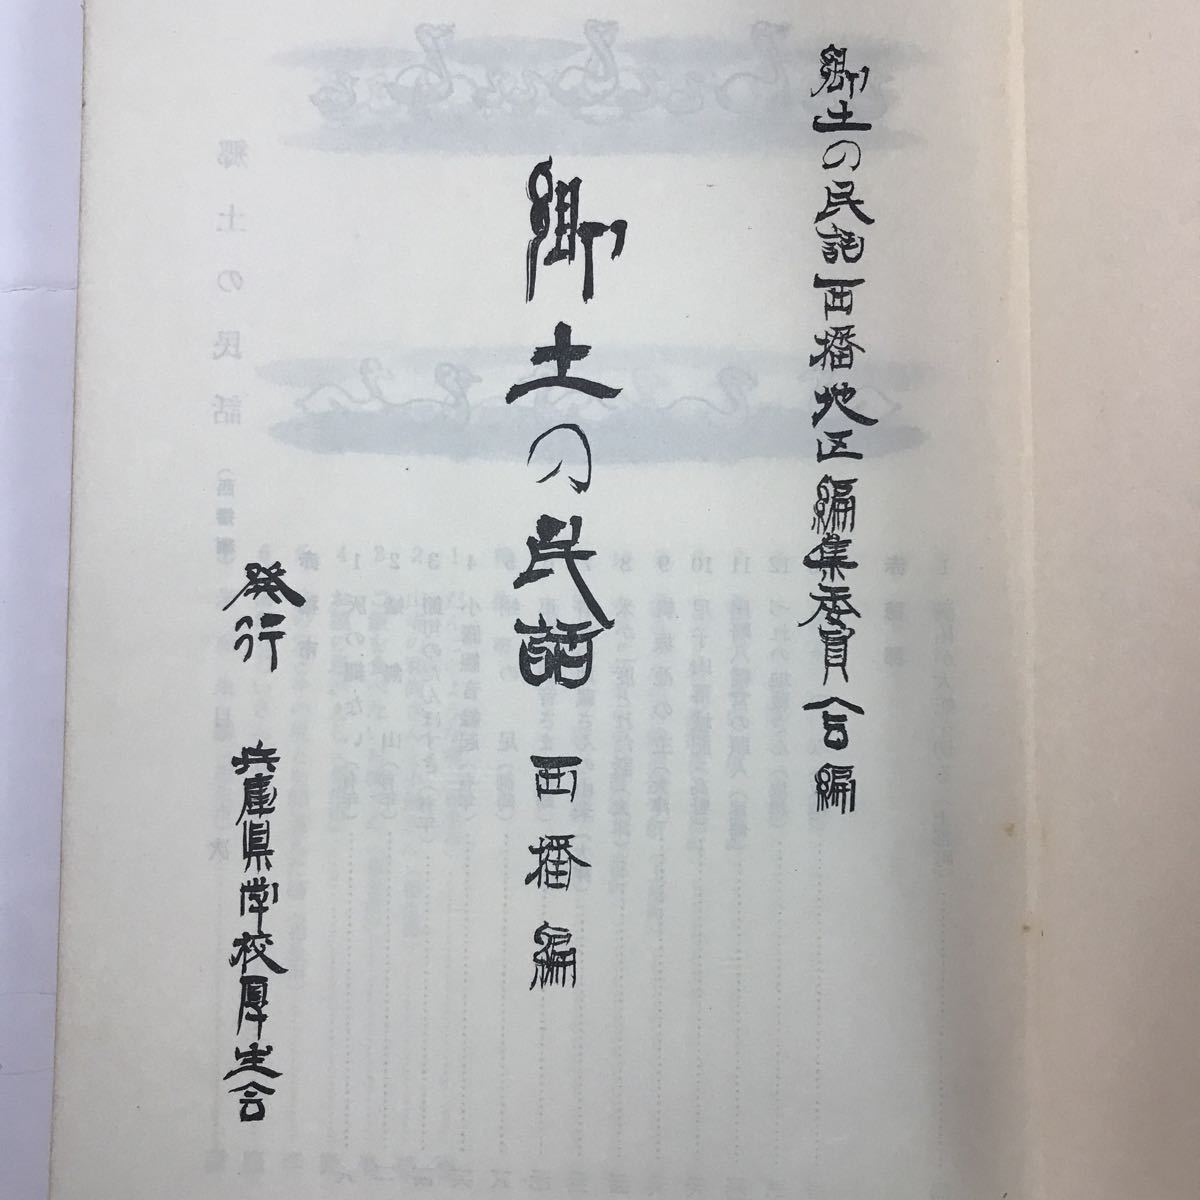 郷土の民話西播地区編集委員会編
郷土の民話 西播編
発行 兵庫県学校厚生会